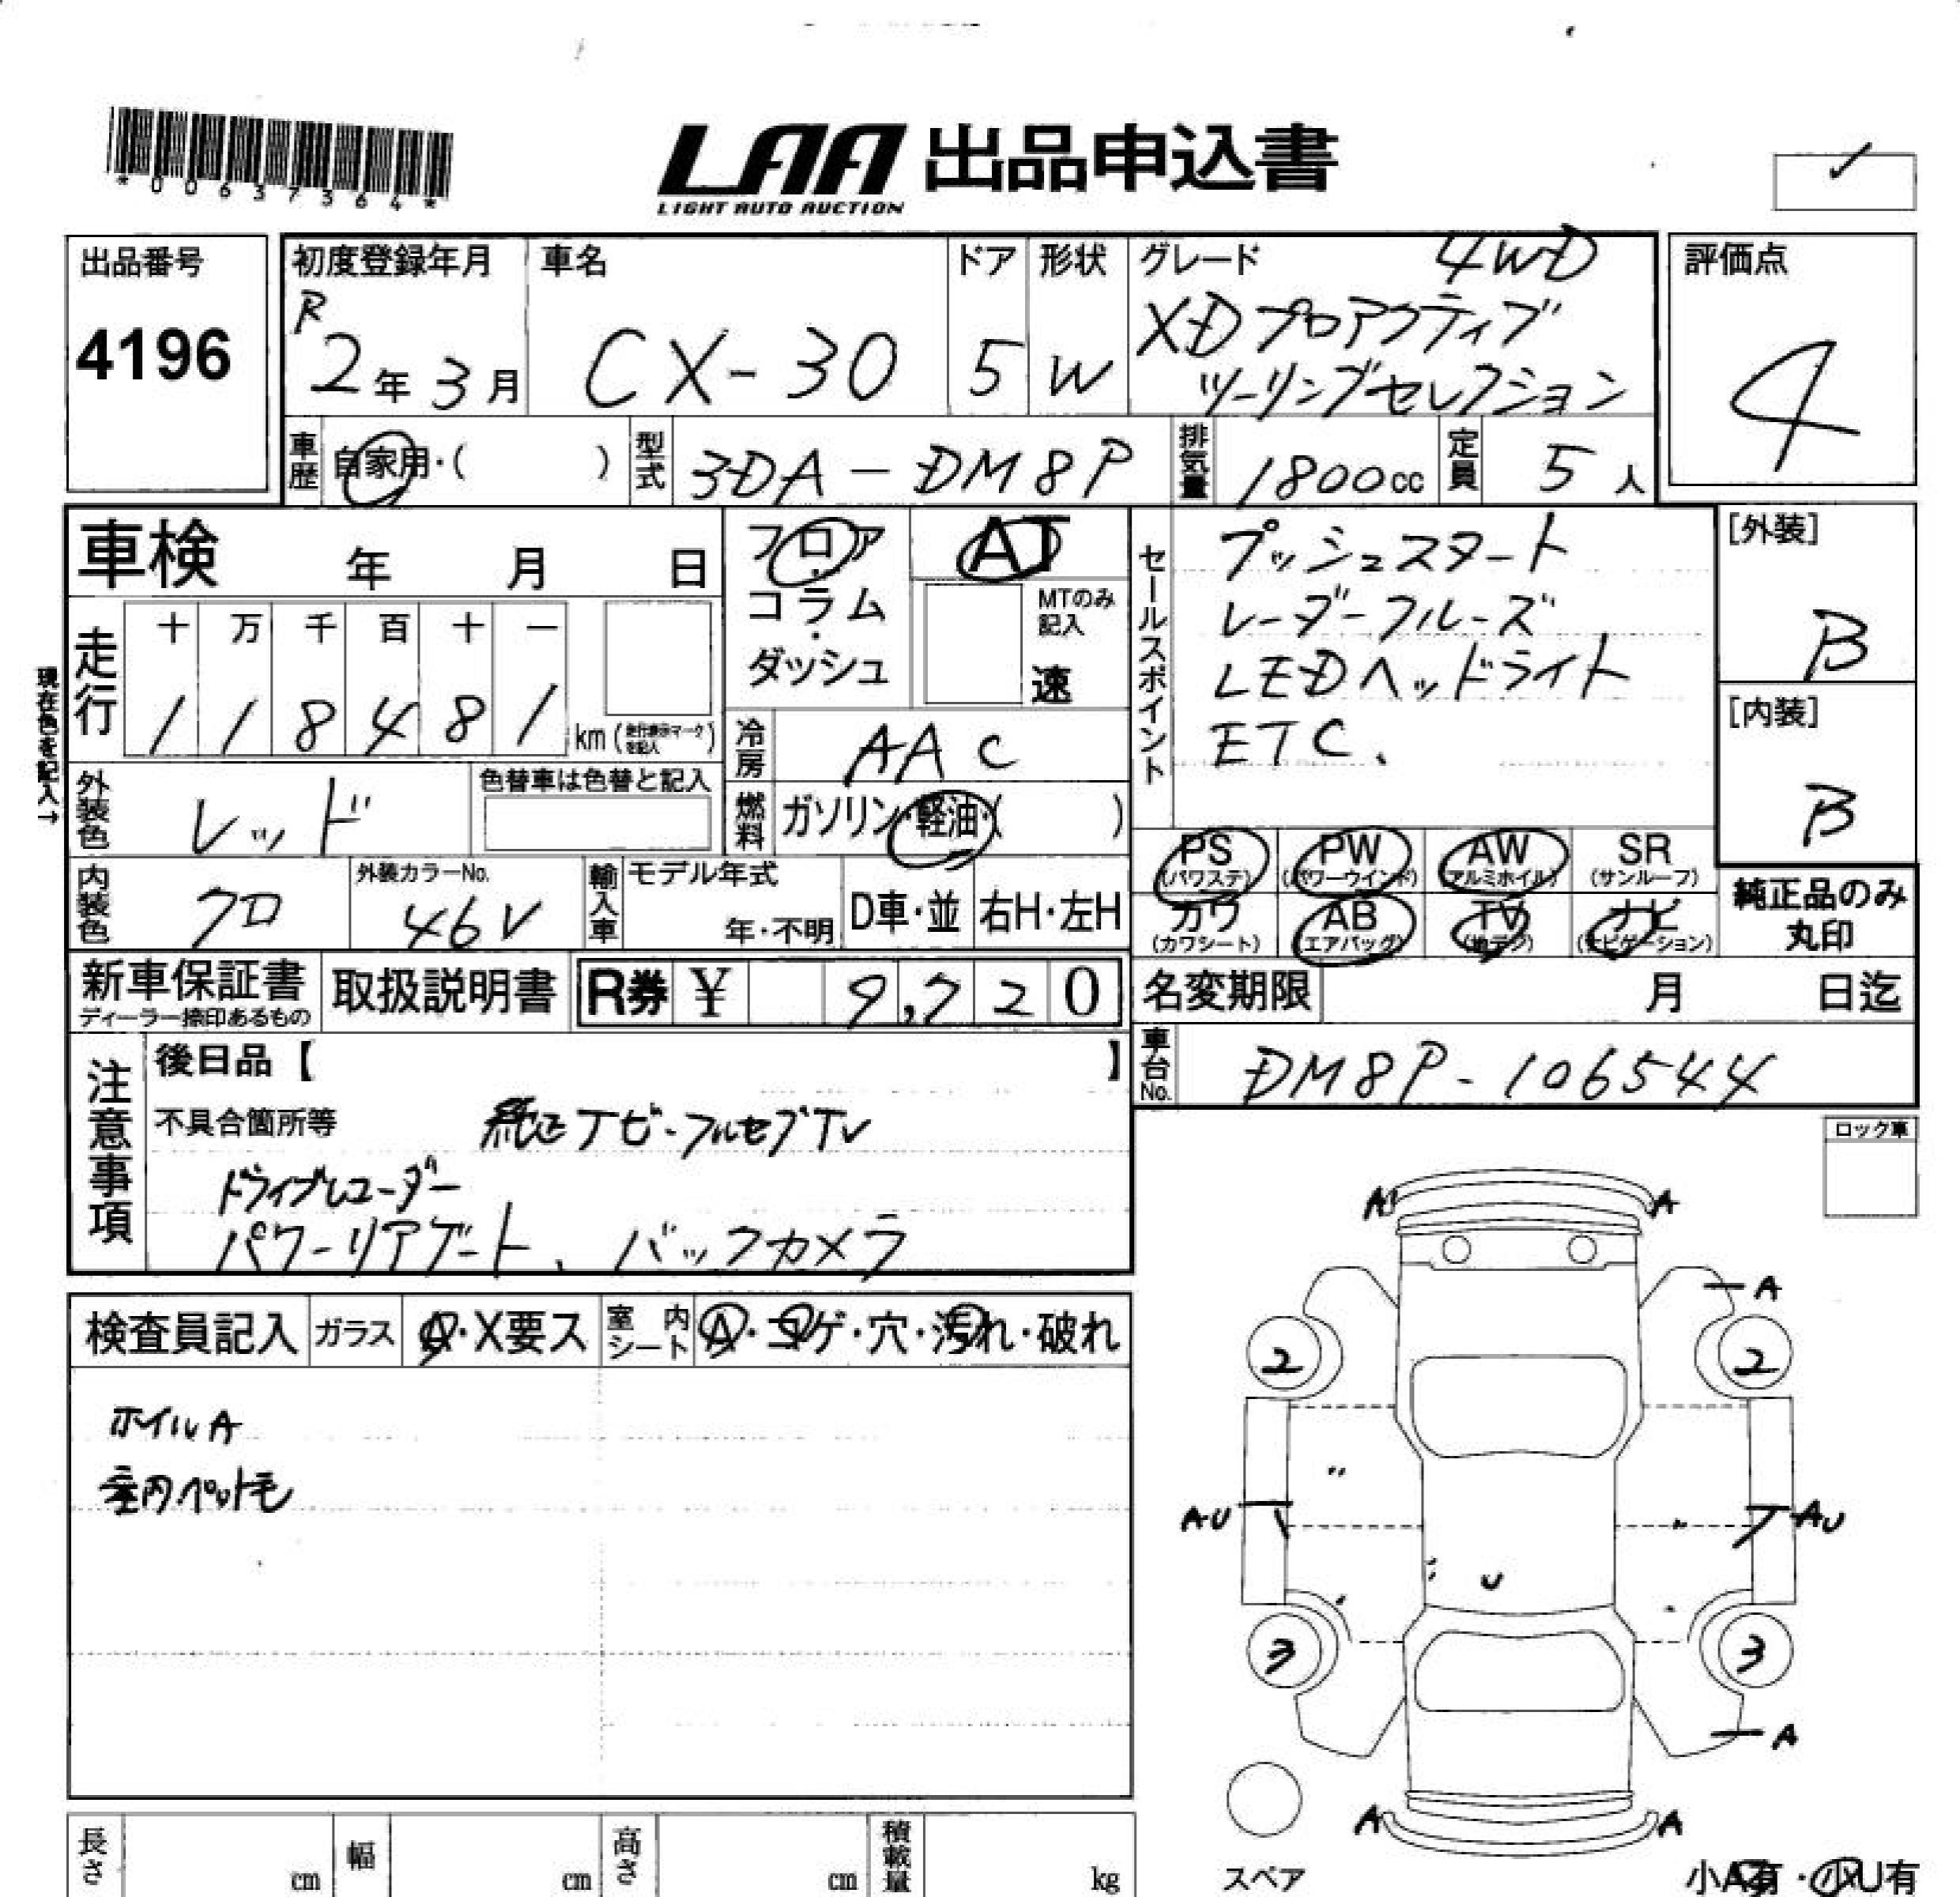 *00637364*
LAA 出品申込書
LIGHT AUTO AUCTION
出品番号
4196
初度登録年月
R
2年3月
車名
CX-30
ドア
5
形状
W
グレード
4WD
XDプロアクティブ
ツーリングセレクション
評価点
4
車歴
自家用・( )
型式
3DA-DM8P
排気量
1800cc
定員
5人
車検 年 月 日
フロア・コラム・ダッシュ
AT
MTのみ記入
速
走行
十 万 千 百 十 一
1 1 8 4 8 1 km
現在色を記入→
冷房
AAC
燃料
ガソリン・軽油・( )
外装色
レッド
色替車は色替と記入
内装色
クロ
外装カラーNo.
46V
輸入車
モデル年式
年・不明
D車・並
右H・左H
セールスポイント
プッシュスタート
レーダークルーズ
LEDヘッドライト
ETC.
[外装]
B
[内装]
B
PS (パワステ)
PW (パワーウインド)
AW (アルミホイル)
SR (サンルーフ)
カワ (カワシート)
AB (エアバッグ)
TV (地デジ)
ナビ (ナビゲーション)
純正品のみ丸印
新車保証書
ディーラー捺印あるもの
取扱説明書
R券 ¥ 9,720
名変期限 月 日迄
車台No.
DM8P-106544
注意事項
後日品【 】
不具合箇所等
純正ナビ-フルセグTV
ドライブレコーダー
パワーリアゲート、バックカメラ
ロック車
検査員記入
ガラス
A・X要ス
室内シート
A・コゲ・穴・汚れ・破れ
ホイルA
室内ペット毛
A A
A
2 2
AU AU
U
3 3
A
A A
スペア
小A有・小U有
長さ cm
幅 cm
高さ cm
積載量 kg